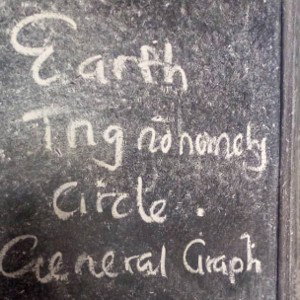 Earth
Trignonomety
Circle.
General Graph